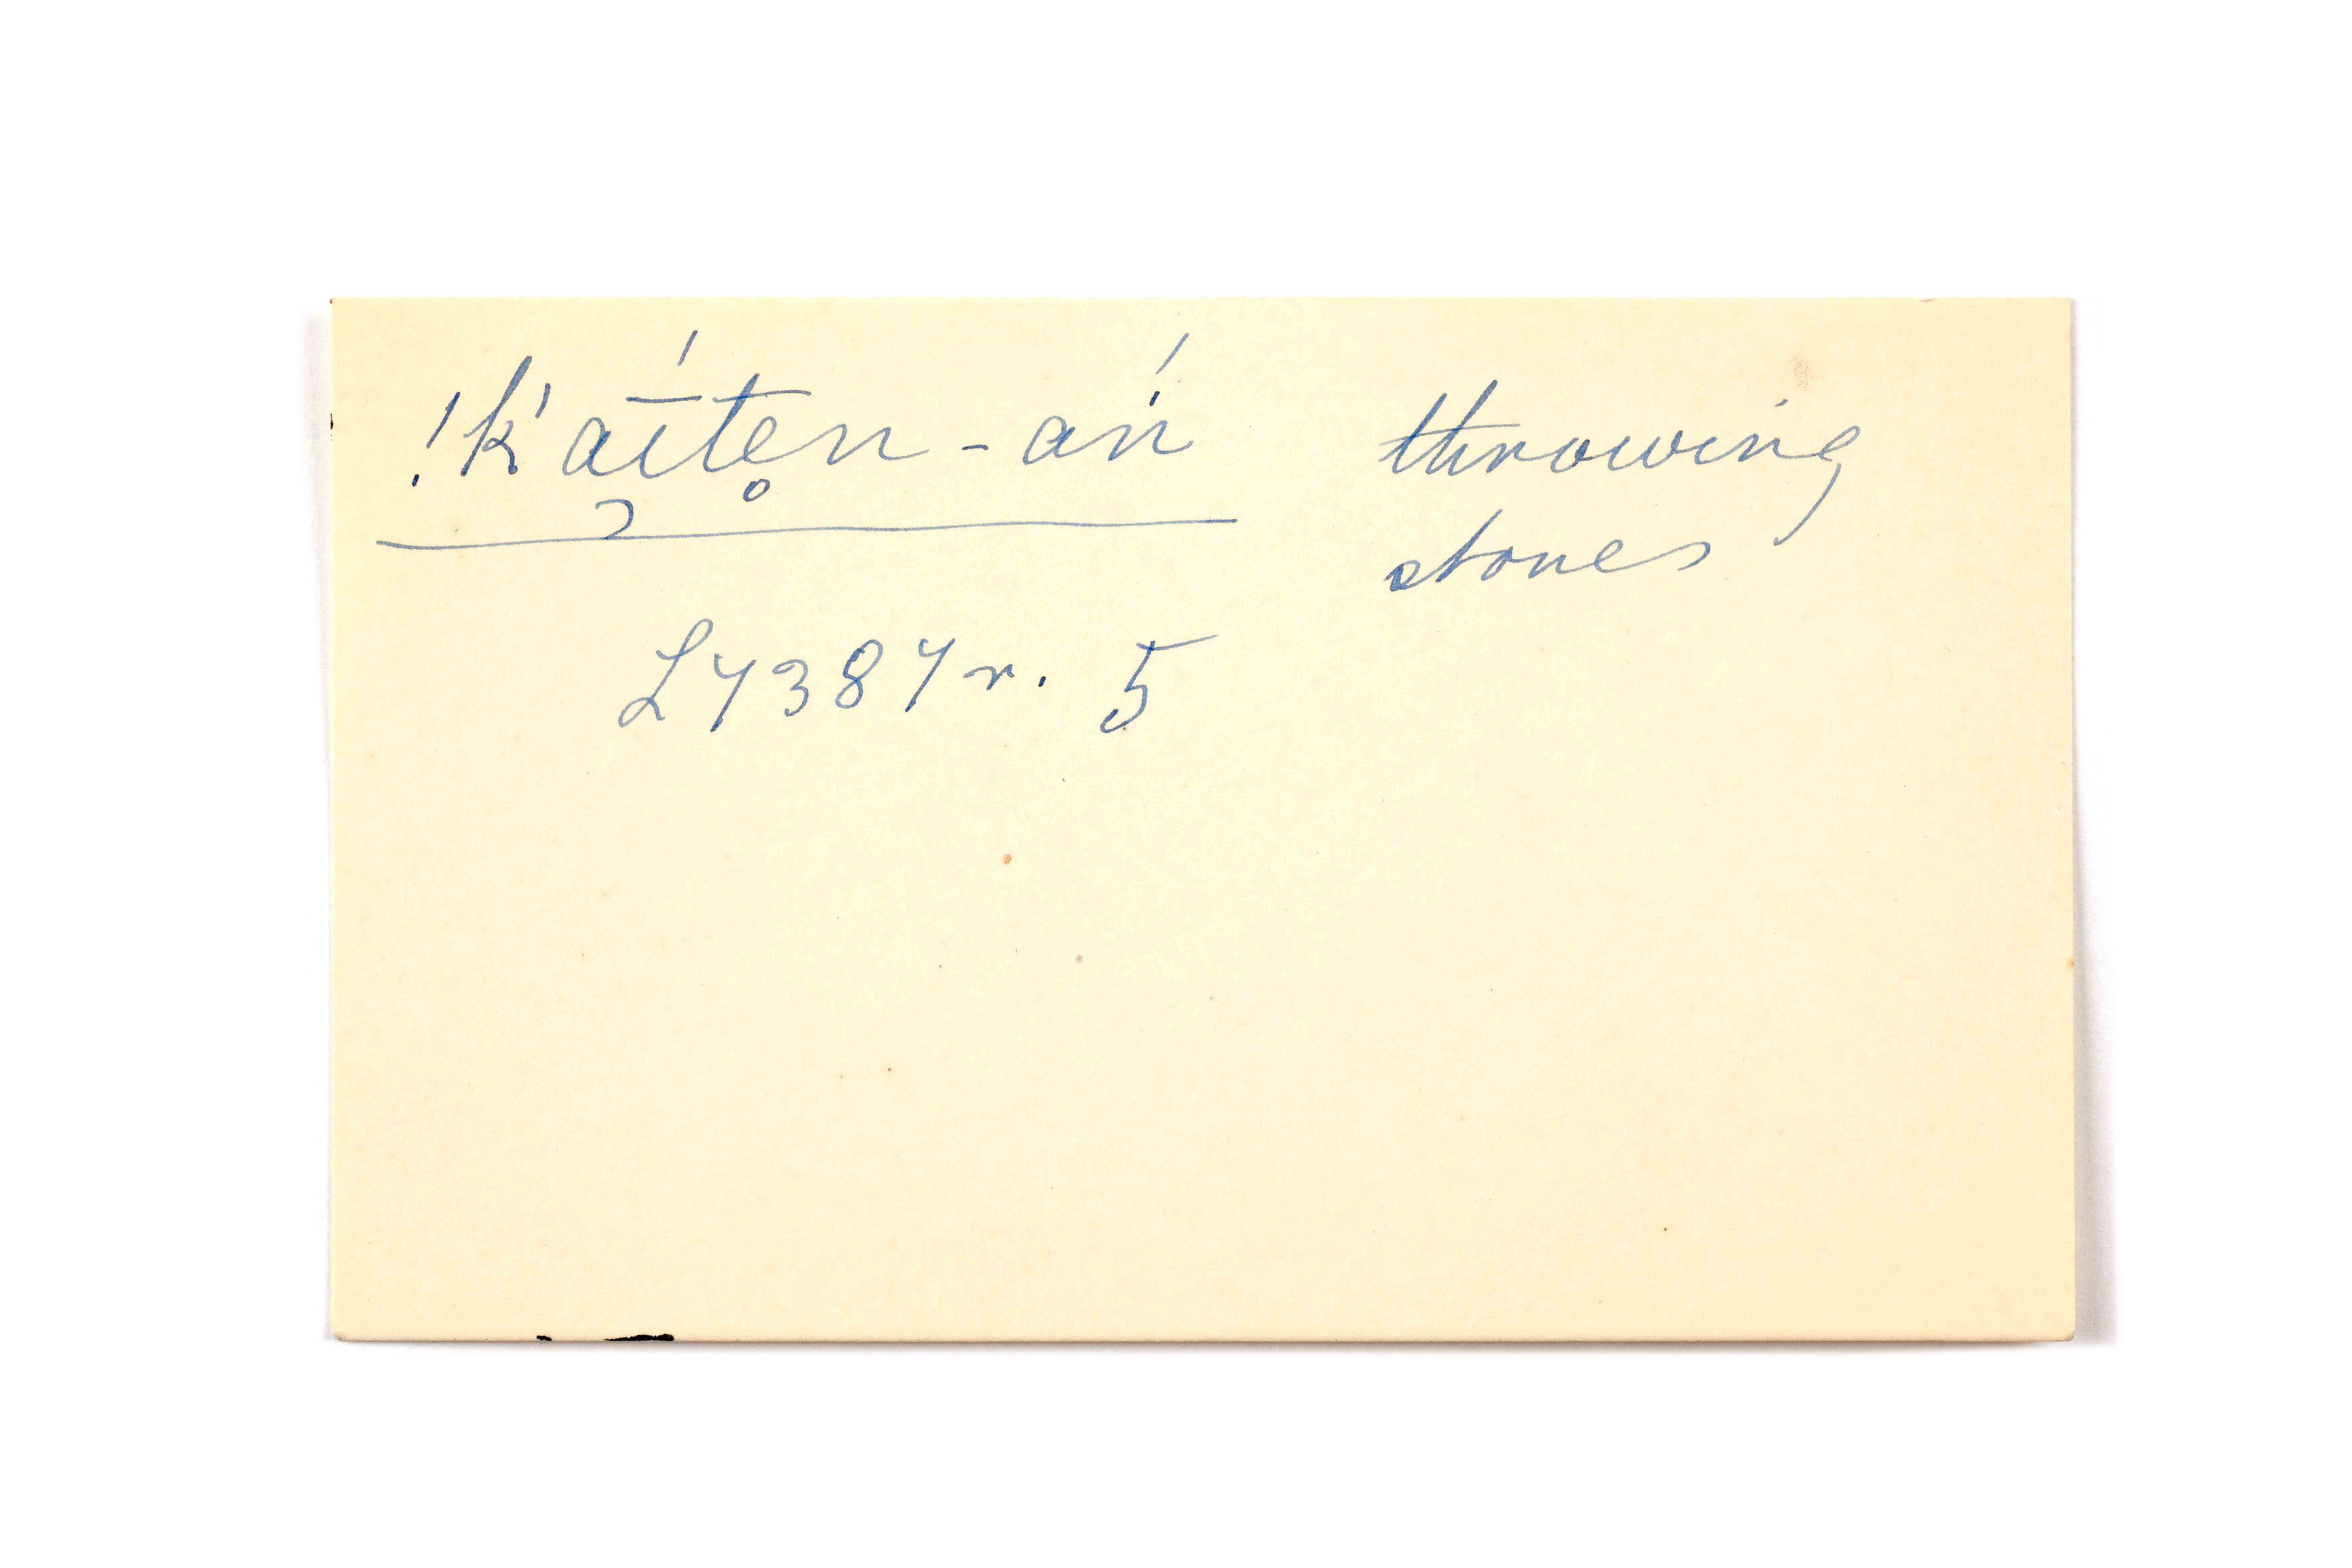 !k'aī́te̥n-ań throwing
stones
L7387r. 5